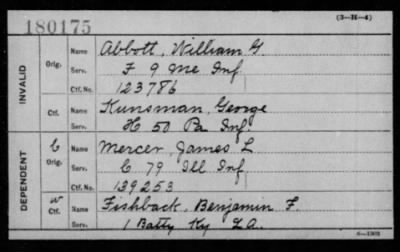 180175
(3—H—4)
INVALID
Orig.
Name Abbott, William G
Serv. F 9 Me Inf
Ctf. No. 123786
Ctf.
Name Kunsman, George
Serv. H 50 Pa Inf
DEPENDENT
C
Orig.
Name Mercer, James L
Serv. C 79 Ill Inf
Ctf. No. 139253
W
Ctf.
Name Fishback, Benjamin F.
Serv. 1 Batty Ky L.A.